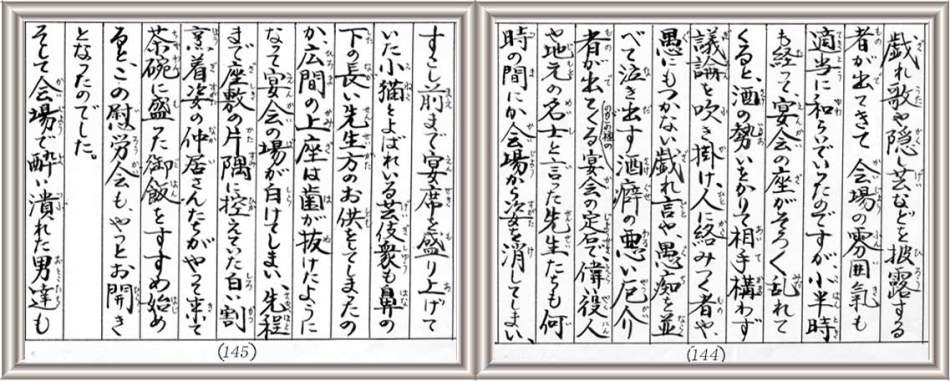 戯れ歌や隠し芸などを披露する
者が出てきて、会場の雰囲気も
適当に和らいでいったのですが、小半時
も経って、宴会の座がそろそろ乱れて
くると、酒の勢いをかりて相手構わず
議論を吹き掛け、人に絡みつく者や、
愚にもつかない戯れ言や、愚痴を並
べて泣き出す酒癖の悪い厄介
者が出てくる宴会の定石で、偉い役人
や地元の名士と言った先生たちも何
時の間にか会場から姿を消してしまい、
(144)
すこし前まで宴席を盛り上げて
いた小猫とよばれいる芸伎衆も鼻の
下の長い先生方のお供をしてしまったの
か、広間の上座は歯が抜けたように
なって宴会の場が白けてしまい、先程
まで座敷の片隅に控えていた白い割
烹着姿の仲居さんたちがやって来て
茶碗に盛った御飯をすすめ始め
ると、この慰労会も、やっとお開き
となったのでした。
そして会場で酔い潰れた男達も
(145)